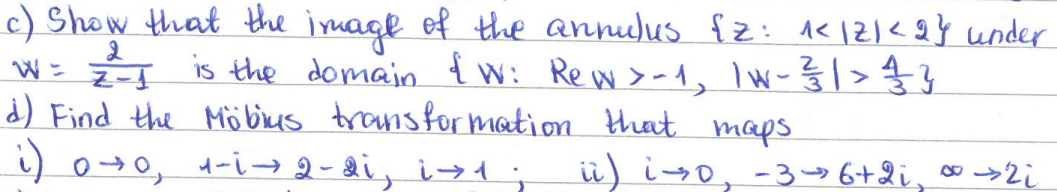 c) Show that the image of the annulus {z: 1<|z|<2} under
w = 2/(z-1) is the domain {w: Re w > -1, |w - 2/3| > 4/3}
d) Find the Möbius transformation that maps
i) 0→0, 1-i→2-2i, i→1; ii) i→0, -3→6+2i, ∞→2i